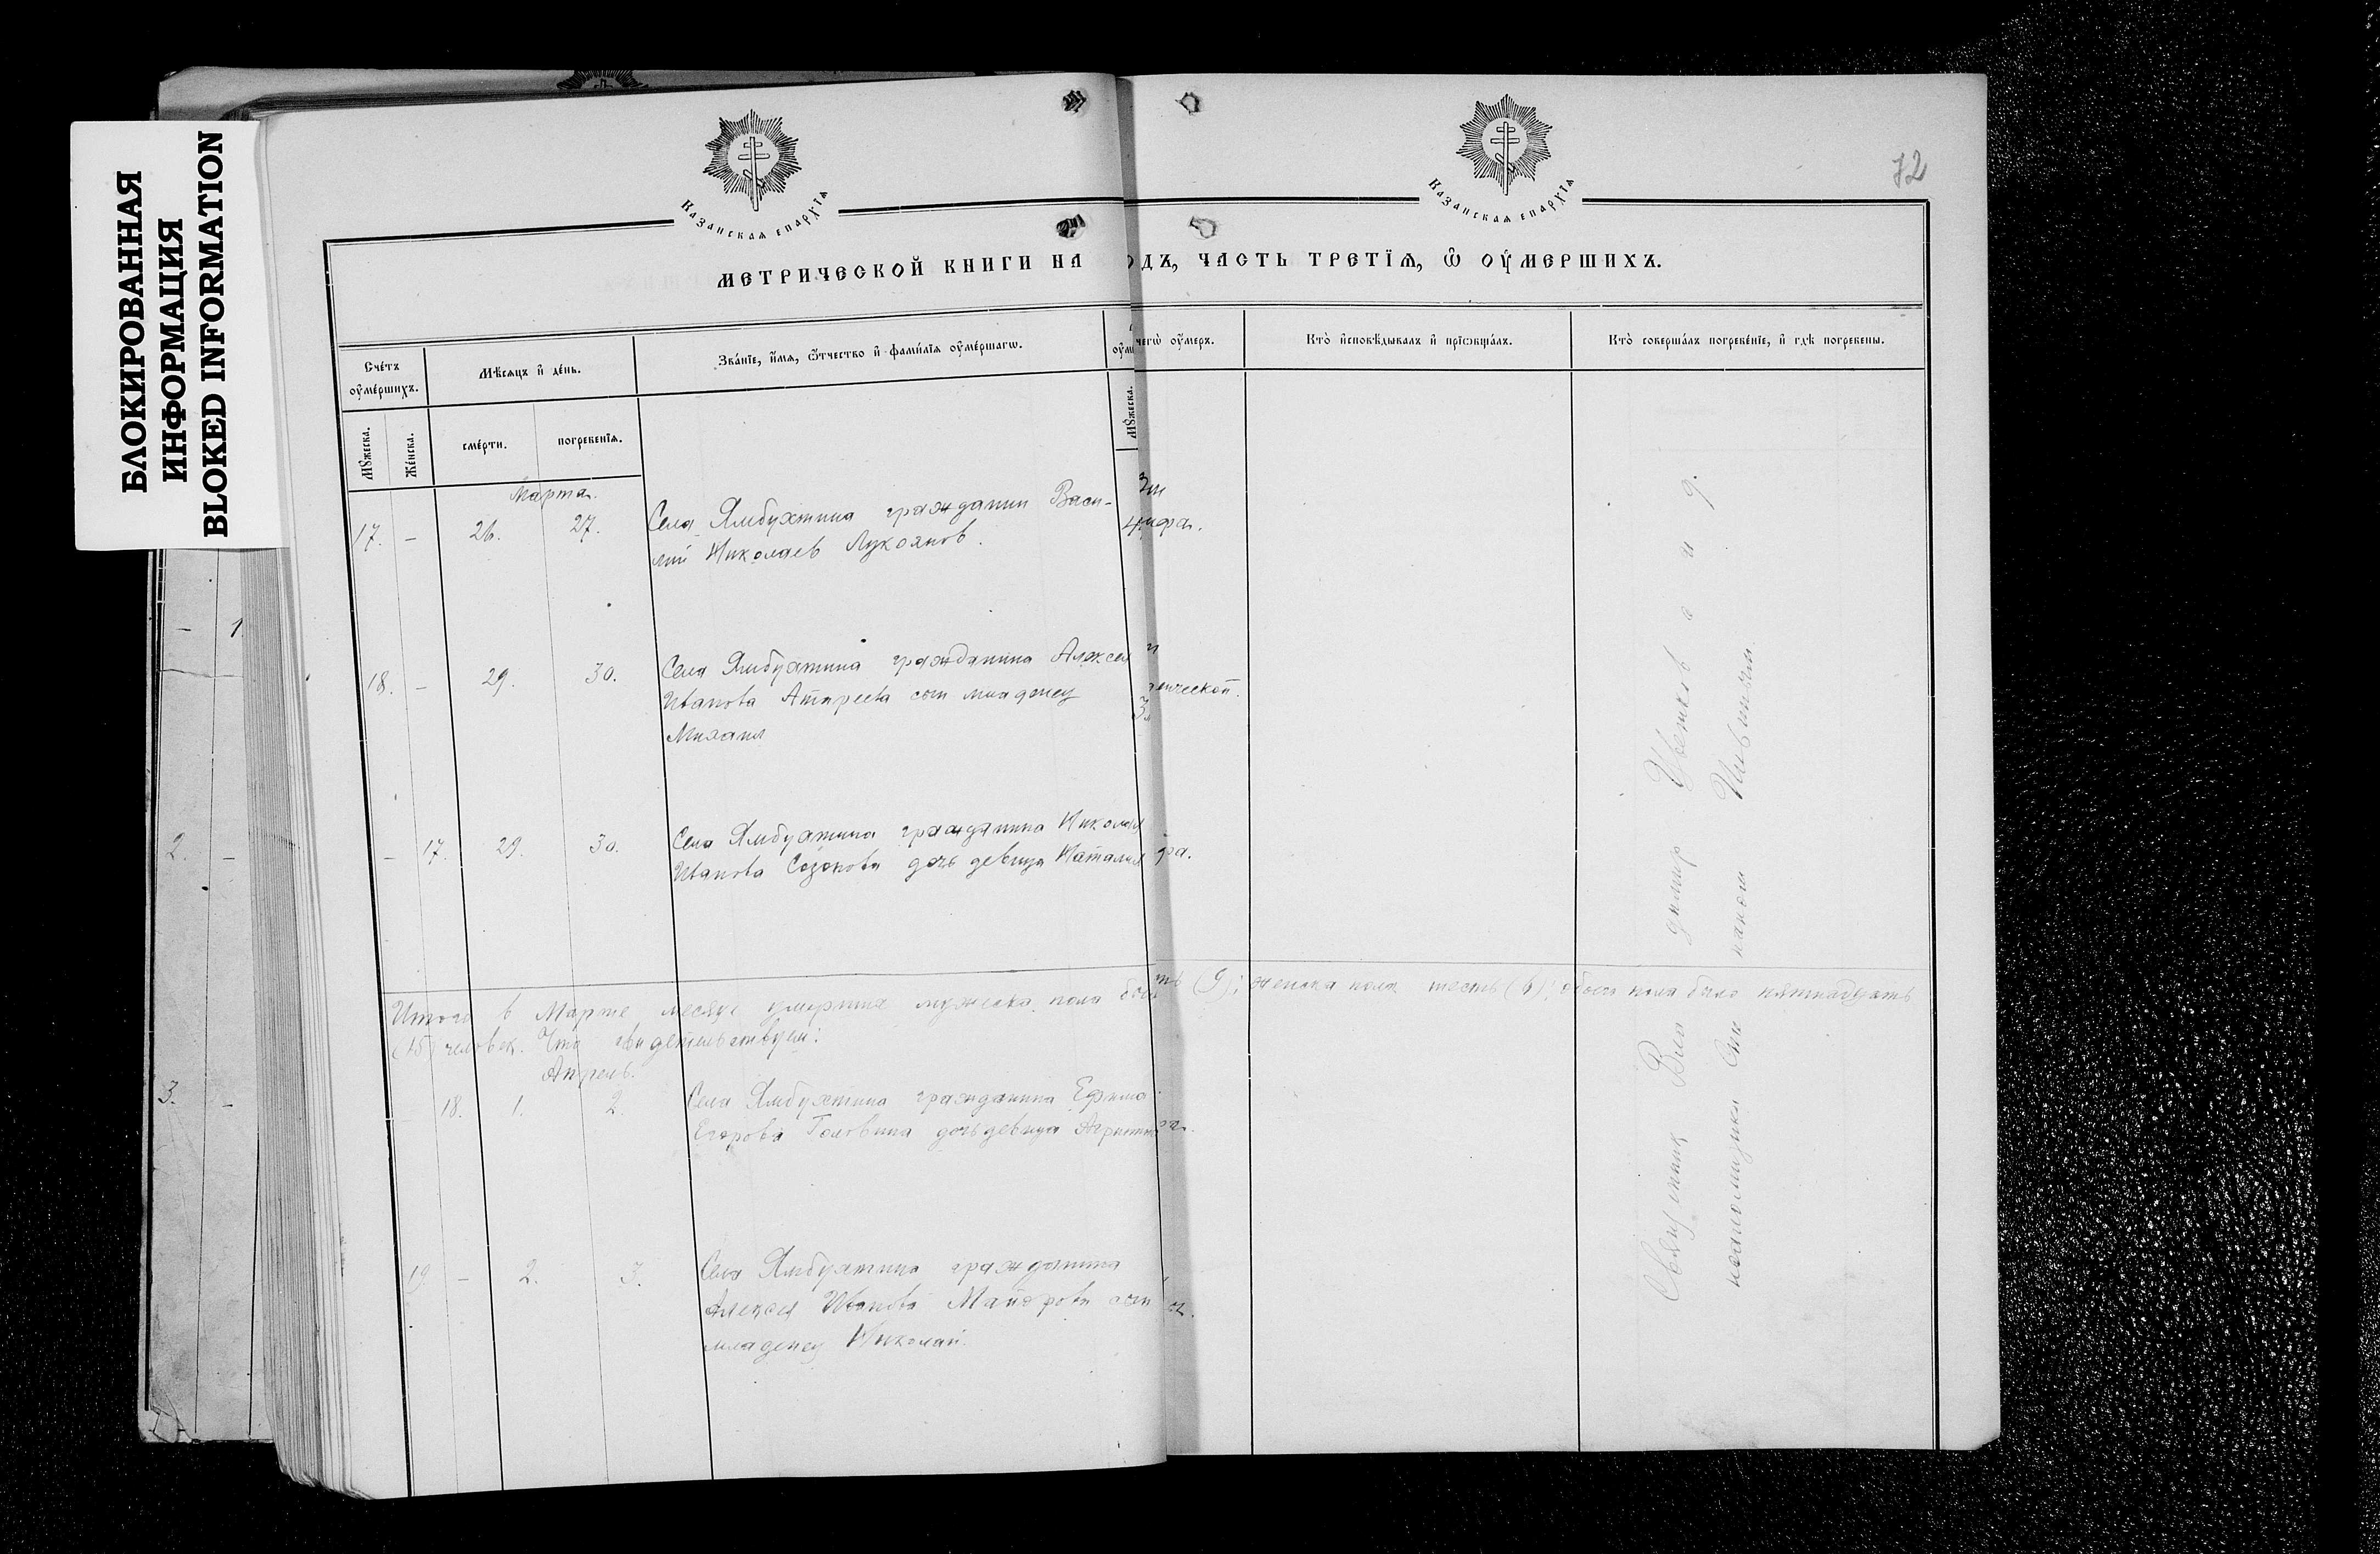 БЛОКИРОВАННАЯ
ИНФОРМАЦИЯ
BLOKED INFORMATION
Казанская епархїѧ
Казанская епархїѧ
72
МЕТРИЧЕСКОЙ КНИГИ НА
ОДЪ, ЧАСТЬ ТРЕТЇѦ, Ѡ ОУМЕРШИХЪ.
Счéтъ
оумéршихъ.
Мѣсяцъ и дéнь.
Звáнїе, и́мя, ѻ́тчество и фамѝлїя оумéршагѡ.
чегѡ̀ оу́меръ.
Ктò и҆сповѣ́дывалъ и҆ прїѡбщáлъ.
Ктò совершáлъ погребéнїе, и҆ гдѣ̀ погребены.
Мꙋжеска.
Жéнска.
смéрти.
погребенїя.
Мꙋжеска.
Марта.
17. - 26. 27. Села Ямбухтина гражданин Васи-
лий Николаев Лукоянов.
18. - 29. 30. Села Ямбухтина гражданина Алексея
Иванова Атяреева сын младенец
Михаил
- 17. 29. 30. Села Ямбухтина гражданина Николая
Иванова Созонова дочь девица Наталия
Итого в Марте месяце умерших мужеска пола (9); женска пола шесть (6); обоего пола было пятнадцать
(15) человек. Что свидетельствуем:
Апрель.
18. 1. 2. Села Ямбухтина гражданина Ефима
Егорова Головина дочь девица
19 - 2. 3. Села Ямбухтина гражданина
Алексея Иванова Майорова сын
младенец Николай.
Священник Цветков
псаломщик
1.
2. -
3. -